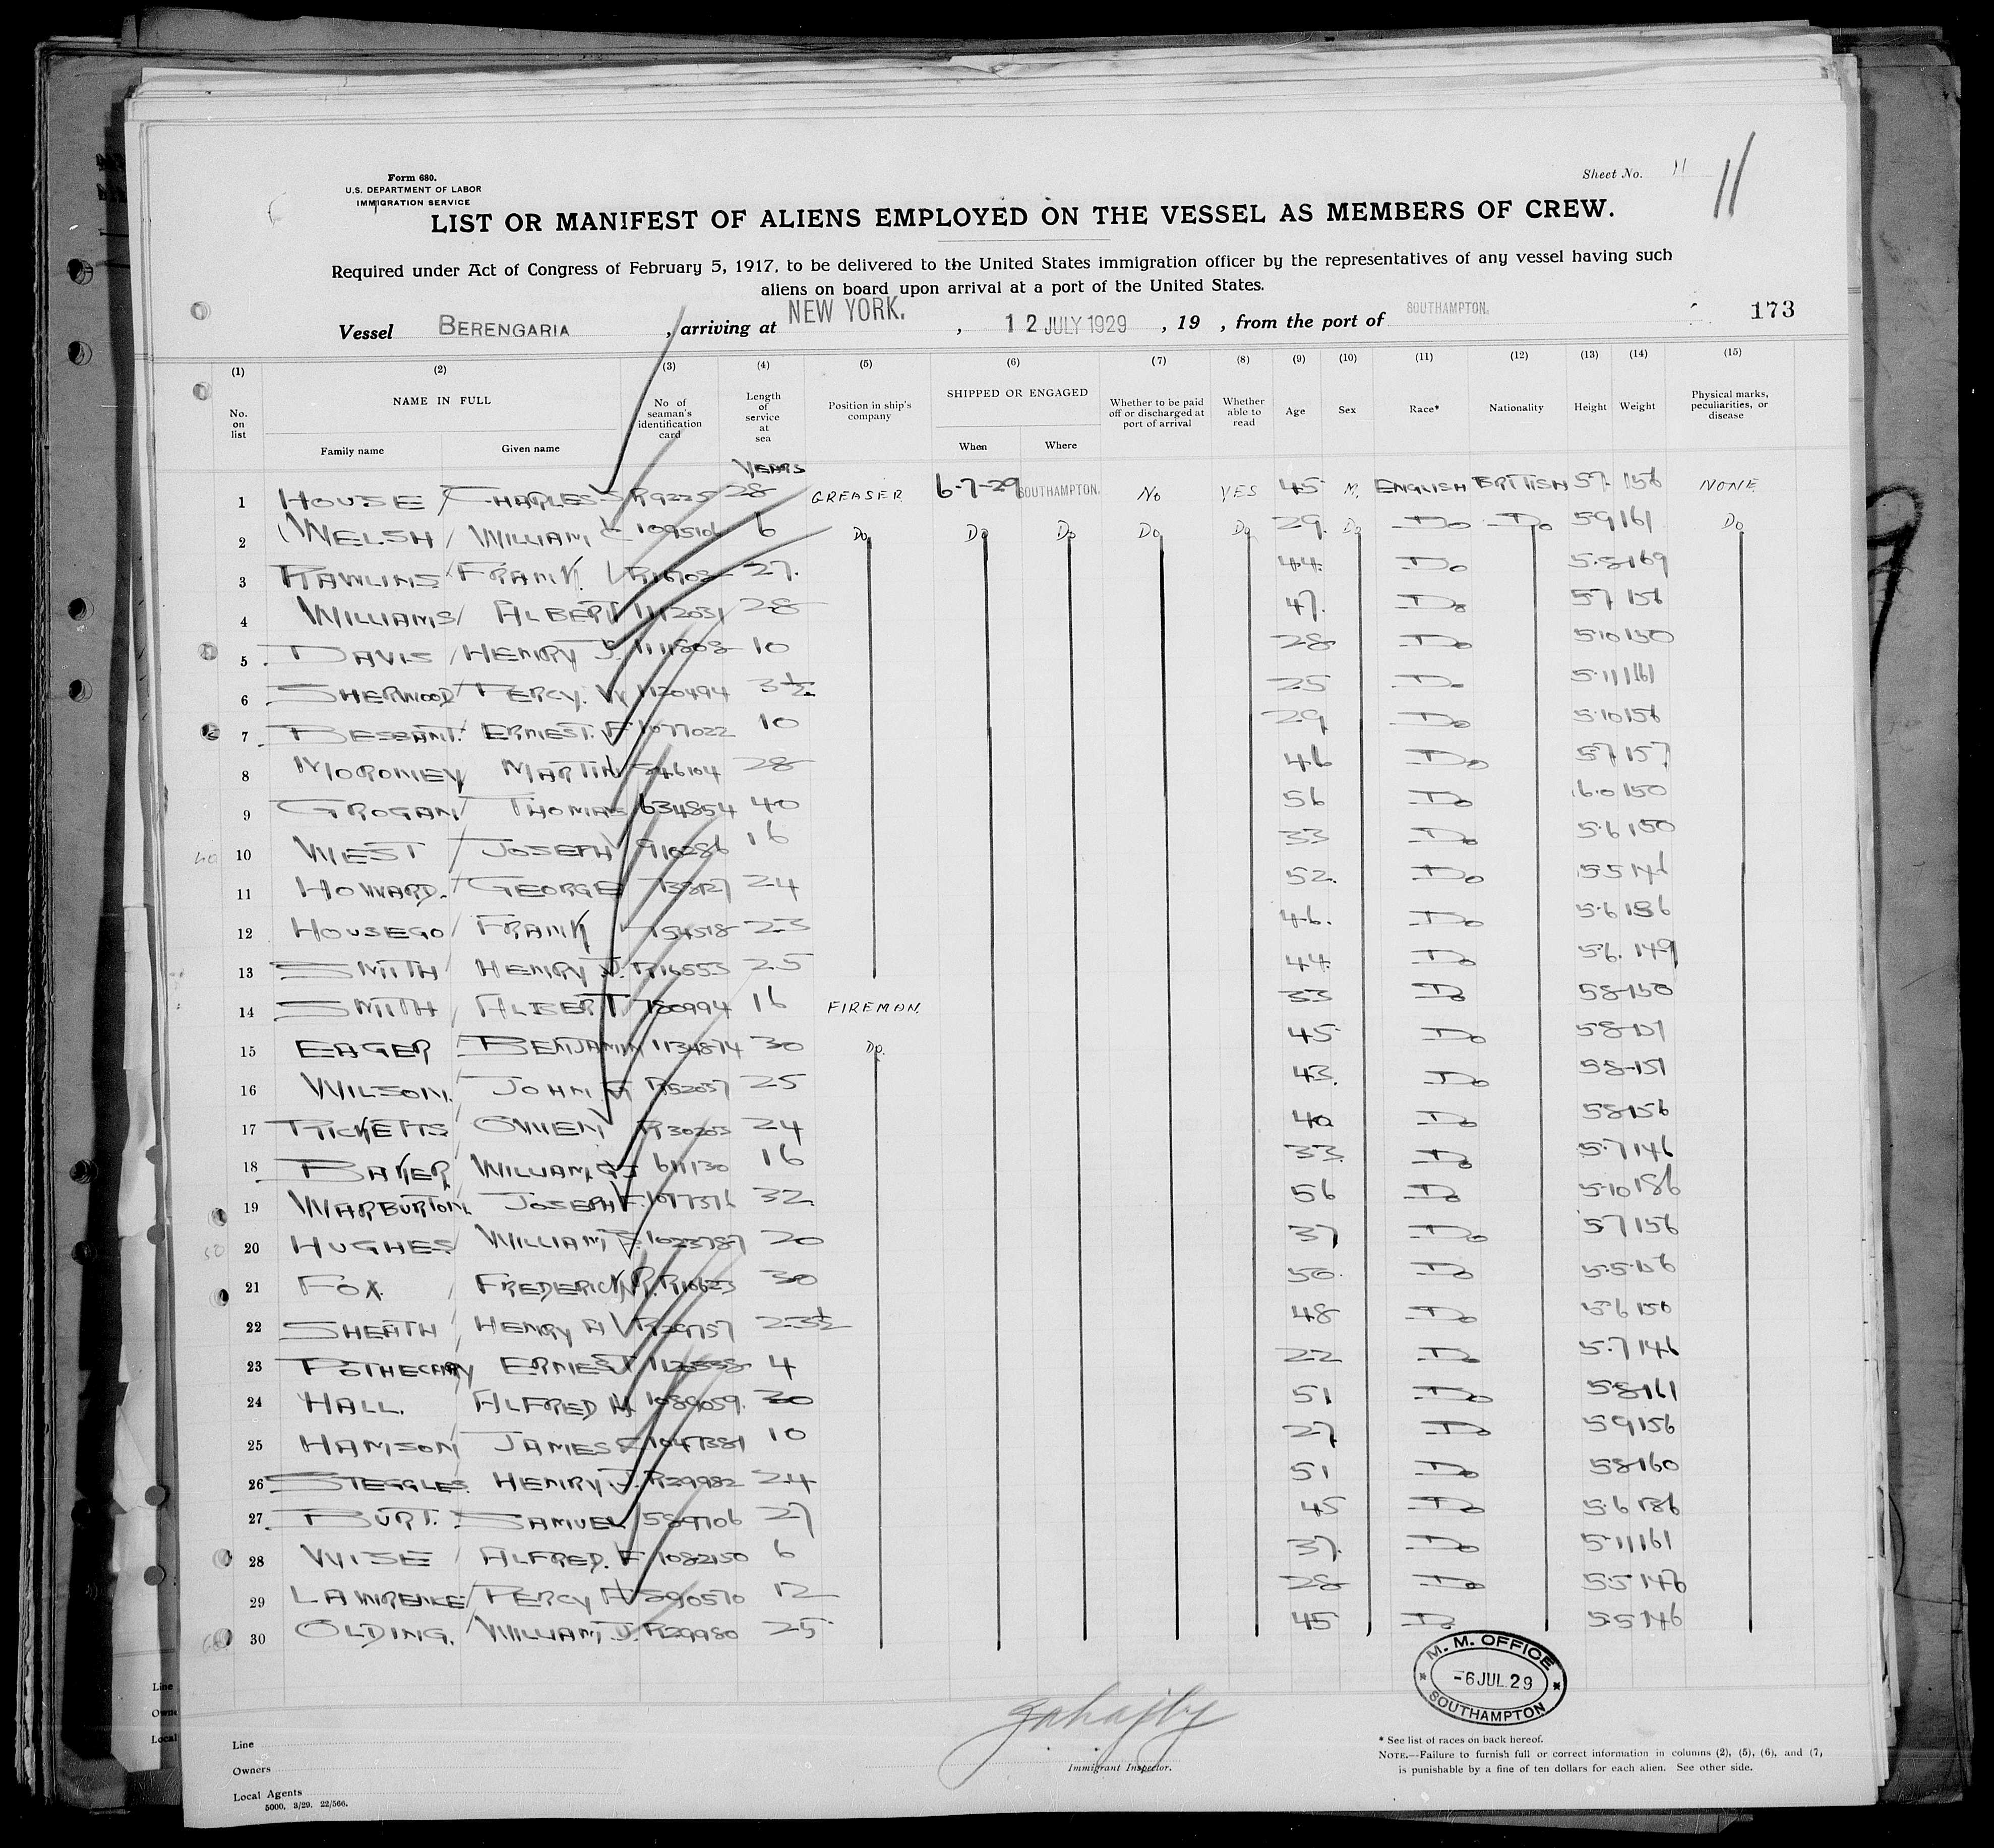 Form 680.
U.S. DEPARTMENT OF LABOR
IMMIGRATION SERVICE
Sheet No. 11 11
LIST OR MANIFEST OF ALIENS EMPLOYED ON THE VESSEL AS MEMBERS OF CREW.
Required under Act of Congress of February 5, 1917, to be delivered to the United States immigration officer by the representatives of any vessel having such
aliens on board upon arrival at a port of the United States.
Vessel BERENGARIA, arriving at NEW YORK., 12 JULY 1929, 19 , from the port of SOUTHAMPTON. 173
(1) (2) (3) (4) (5) (6) (7) (8) (9) (10) (11) (12) (13) (14) (15)
No. on list NAME IN FULL Family name Given name No. of seaman's identification card Length of service at sea Position in ship's company SHIPPED OR ENGAGED When Where Whether to be paid off or discharged at port of arrival Whether able to read Age Sex Race* Nationality Height Weight Physical marks, peculiarities, or disease
YEARS
1 HOUSE CHARLES S R9225 28 GREASER 6-7-29 SOUTHAMPTON. No YES 45 M. ENGLISH BRITISH 57. 156 NONE
2 WELSH WILLIAM 109510 6 Do Do Do Do Do 29. Do Do Do 59 161 Do
3 RAWLINS FRANK 27. 44. Do 5.8 169
4 WILLIAMS ALBERT 1112031 28 47. Do 57 156
5 DAVIS HENRY J. 1111808 10 28 Do 5.10 150
6 SHERWOOD PERCY. W 1120494 3½ 25 Do 5.11 161
7 BESSANT. ERNEST. F 1077022 10 29 Do 5.10 156
8 MORONEY MARTIN 546104 28 46 Do 57 157
9 GROGAN THOMAS 634854 40 56 Do 6.0 150
10 WEST JOSEPH 910286 16 33 Do 5.6 150
11 HOWARD. GEORGE 24 52. Do 55 146
12 HOUSEGO FRANK 754518 23 46. Do 5.6 156
13 SMITH HENRY J. R16553 25 44. Do 5.6. 149
14 SMITH ALBERT 780994 16 FIREMAN. 33 Do 58 150
15 EAGER BENJAMIN 1134874 30 Do. 45 Do 58 151
16 WILSON. JOHN G R52057 25 43. Do 58 151
17 RICKETTS OWEN R30203 24 40 Do 58 156
18 BAKER WILLIAM G J 611130 16 33. Do 5.7 146
19 WARBURTON. JOSEPH F. 1017376 32 56 Do 5.10 186
20 HUGHES WILLIAM B. 1023787 20 37 Do 57 156
21 FOX. FREDERICK R. R10623 30 50. Do 5.5 156
22 SHEATH HENRY A R29757 23½ 48 Do 5.6 150
23 POTHECARY ERNEST 4 22 Do 5.7 146
24 HALL. ALFRED H. 1089059. 30 51 Do 58 161
25 HAMSON JAMES 1047381 10 27 Do 59 156
26 STEGGLES. HENRY J. R29982 24 51 Do 58 160
27 BURT. SAMUEL 589706 27 45 Do 5.6 186
28 WISE ALFRED. F 1082150 6 37. Do 5.11 161
29 LAWRENCE PERCY A 590570 12 28 Do 55 146
30 OLDING. WILLIAM J. R29980 25 45 Do 5.5 146
M. M. OFFICE
-6 JUL 29
SOUTHAMPTON
Line
Owners
Local Agents
5000, 3/29. 22/566.
Immigrant Inspector.
* See list of races on back hereof.
NOTE.—Failure to furnish full or correct information in columns (2), (5), (6), and (7),
is punishable by a fine of ten dollars for each alien. See other side.